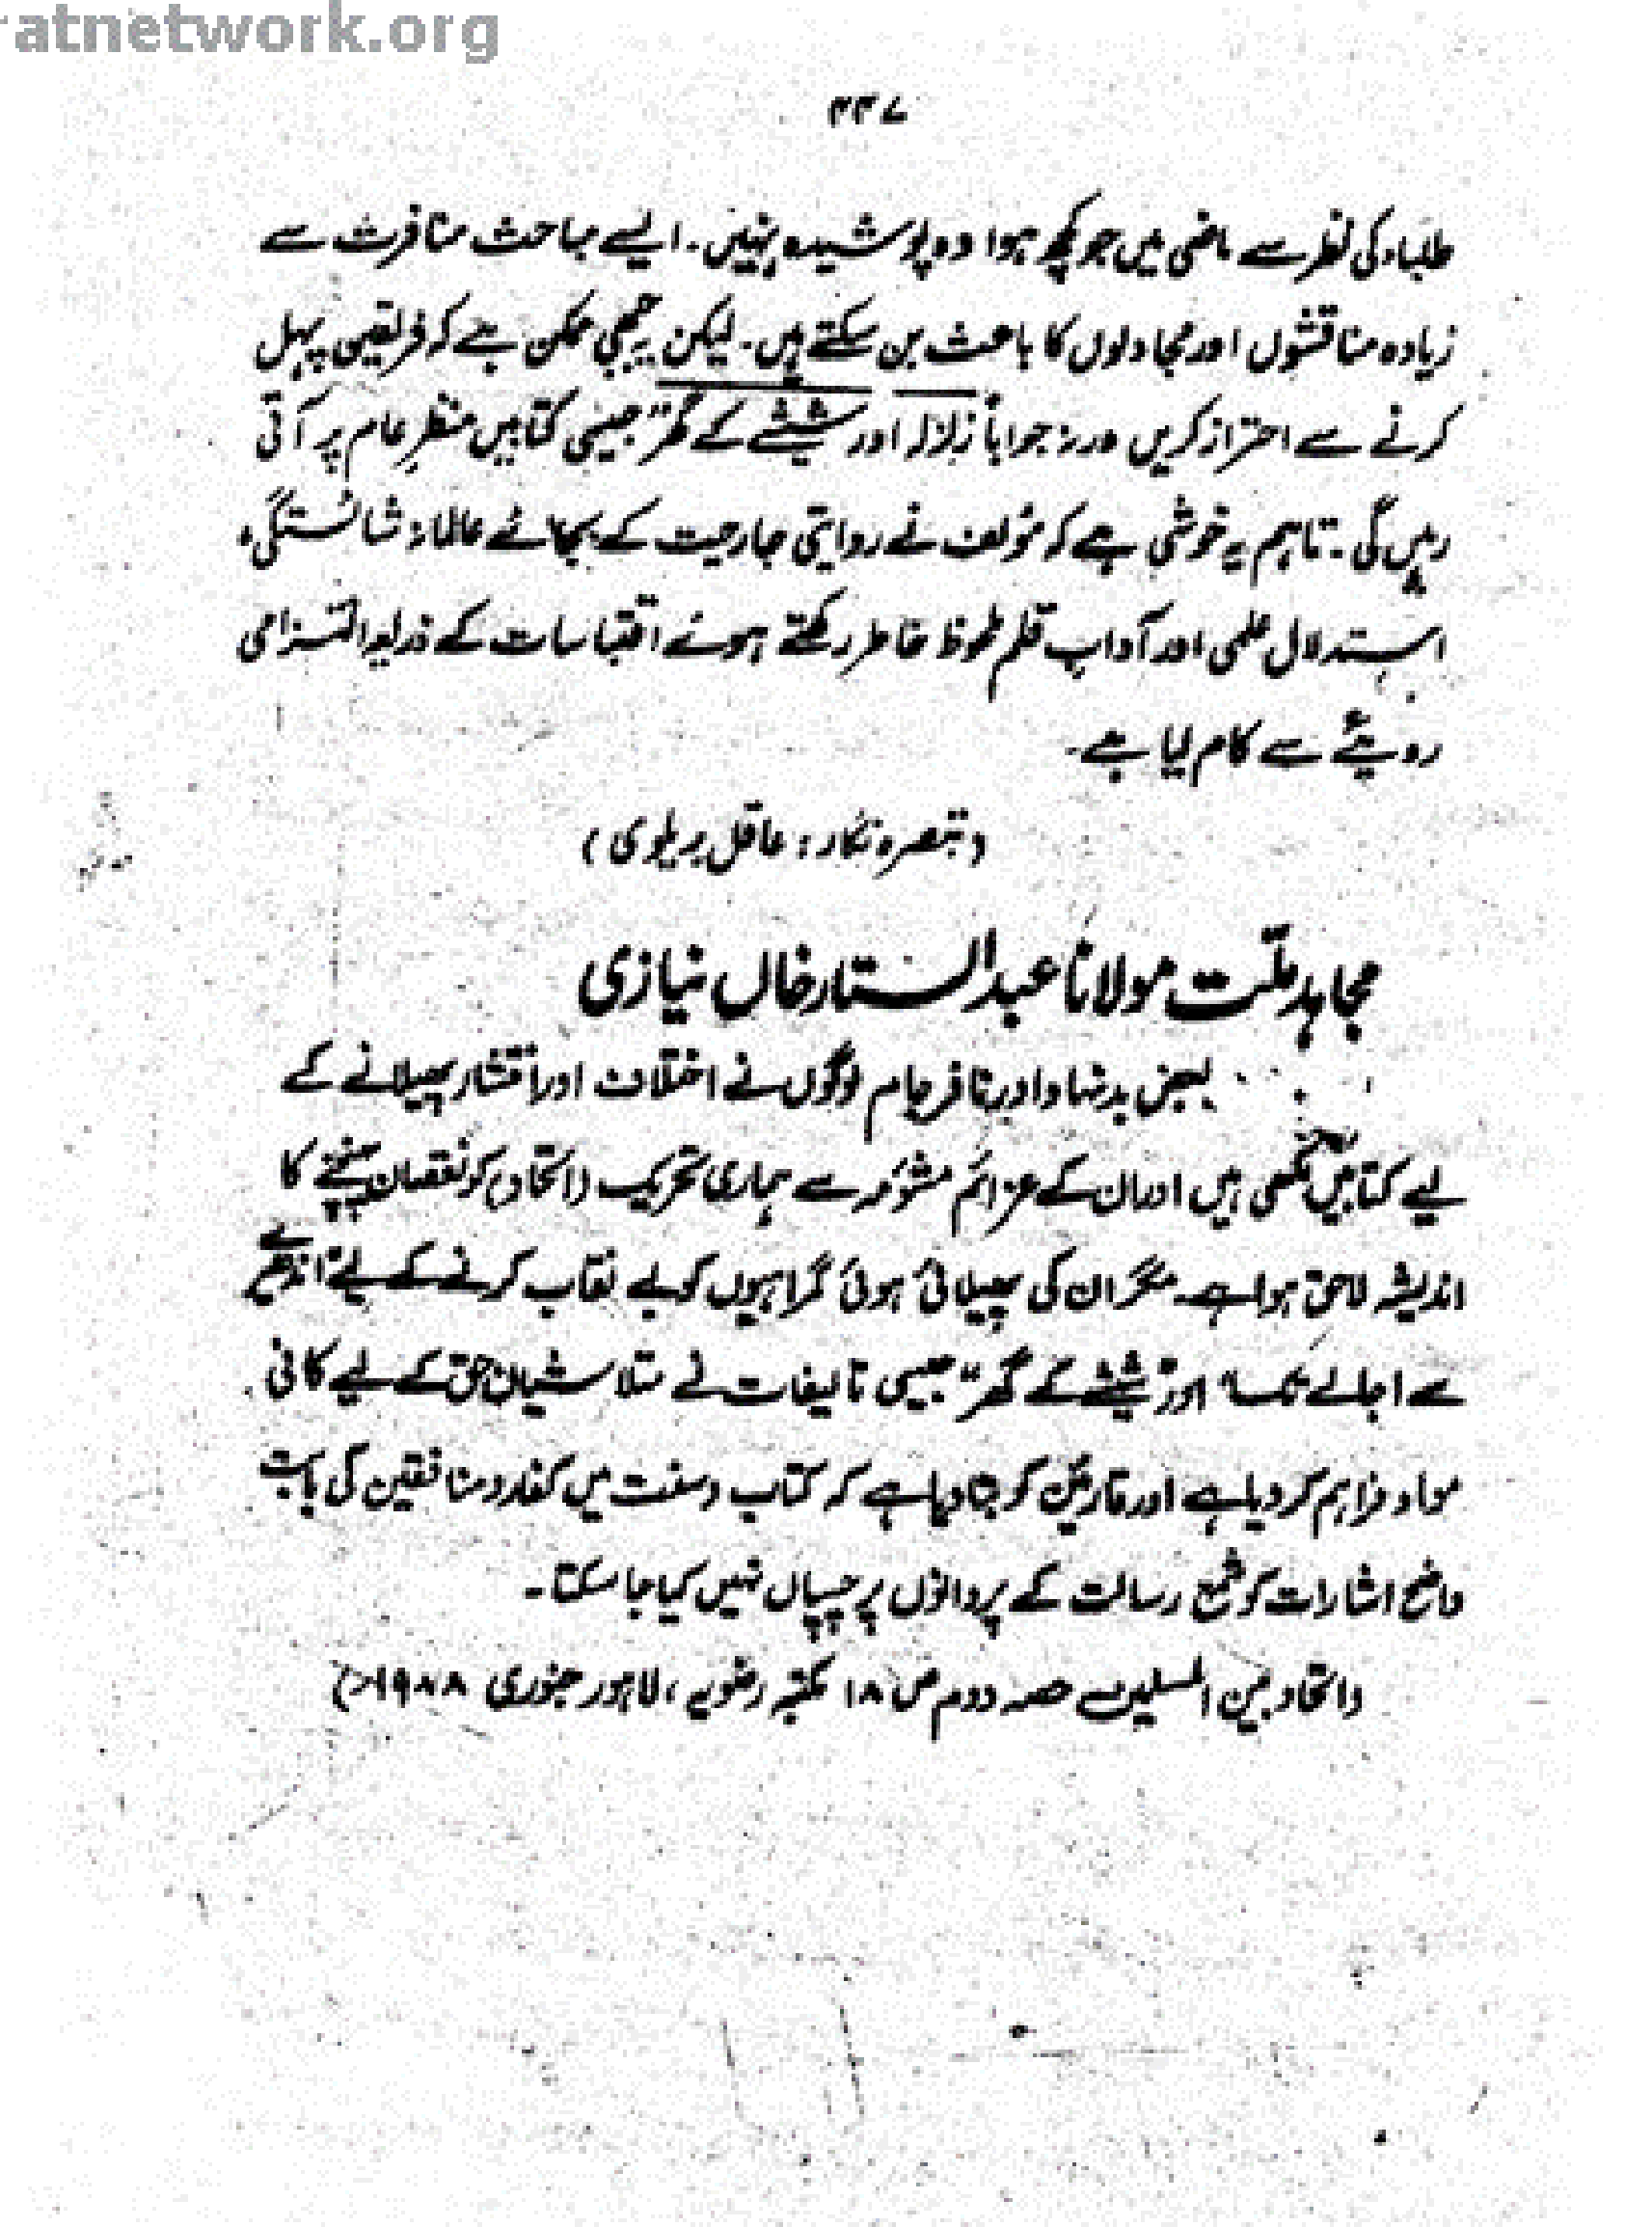 ratnetwork.org
۴۴۷
طلباء کی نظر سے ماضی میں جو کچھ ہوا وہ پوشیدہ نہیں۔ ایسے مباحث منافرت سے
زیادہ مناقشوں اور مجادلوں کا باعث بن سکتے ہیں۔ لیکن یہ جبھی ممکن ہے کہ فریقین پہل
کرنے سے احتراز کریں ورنہ جواباً زلزلہ اور شیشے کے گھر" جیسی کتابیں منظرِ عام پر آتی
رہیں گی۔ تاہم یہ خوشی ہے کہ مؤلف نے روایتی جارحیت کے بجائے عالمانہ شائستگی،
استدلال علمی اور آداب قلم ملحوظ خاطر رکھتے ہوئے اقتباسات کے ذریعہ التزامی
رویئے سے کام لیا ہے۔
(تبصرہ نگار: عاقل بریلوی)
مجاہد ملّت مولانا عبدالستار خاں نیازی
بعض بدنہاد اور نافرجام لوگوں نے اختلاف اور انتشار پھیلانے کے
لیے کتابیں لکھی ہیں اور ان کے عزائم مشؤمہ سے ہماری تحریک (اتحاد) کو نقصان پہنچنے کا
اندیشہ لاحق ہوا ہے۔ مگر ان کی پھیلائی ہوئی گمراہیوں کو بے نقاب کرنے کے لیے "اندھیرے
سے اجالے تک" اور "شیشے کے گھر" جیسی تالیفات نے متلاشیان حق کے لیے کافی
مواد فراہم کر دیا ہے اور قارئین کو بتا دیا ہے کہ کتاب و سنت میں کفار و منافقین کی بابت
واضح اشارات کو شمع رسالت کے پروانوں پر چسپاں نہیں کیا جا سکتا۔
(اتحاد بین المسلمین حصہ دوم ص ۱۸ مکتبہ رضویہ، لاہور جنوری ۱۹۸۸ء)